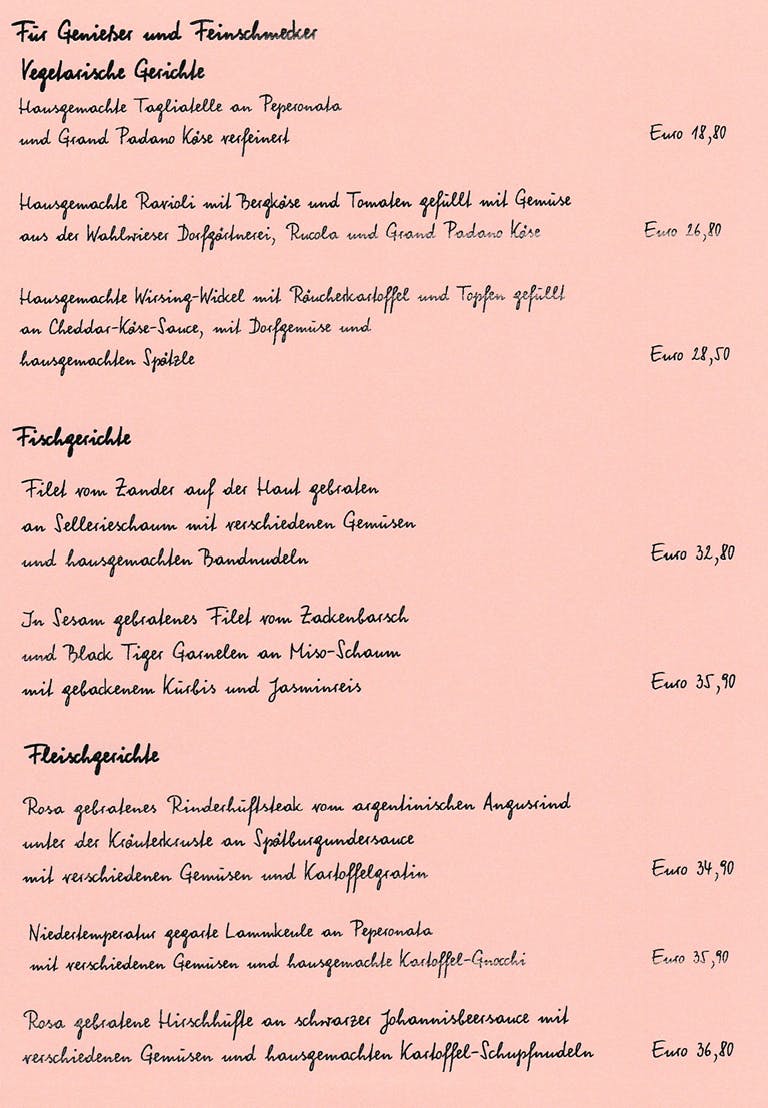 Für Genießer und Feinschmecker
Vegetarische Gerichte
Hausgemachte Tagliatelle an Peperonata
und Grand Padano Käse verfeinert
Euro 18,80
Hausgemachte Ravioli mit Bergkäse und Tomaten gefüllt mit Gemüse
aus der Wahlwieser Dorfgärtnerei, Rucola und Grand Padano Käse
Euro 26,80
Hausgemachte Wirsing-Wickel mit Räucherkartoffel und Topfen gefüllt
an Cheddar-Käse-Sauce, mit Dorfgemüse und
hausgemachten Spätzle
Euro 28,50
Fischgerichte
Filet vom Zander auf der Haut gebraten
an Sellerieschaum mit verschiedenen Gemüsen
und hausgemachten Bandnudeln
Euro 32,80
In Sesam gebratenes Filet vom Zackenbarsch
und Black Tiger Garnelen an Miso-Schaum
mit gebackenem Kürbis und Jasminreis
Euro 35,90
Fleischgerichte
Rosa gebratenes Rinderhüftsteak vom argentinischen Angusrind
unter der Kräuterkruste an Spätburgundersauce
mit verschiedenen Gemüsen und Kartoffelgratin
Euro 34,90
Niedertemperatur gegarte Lammkeule an Peperonata
mit verschiedenen Gemüsen und hausgemachte Kartoffel-Gnocchi
Euro 35,90
Rosa gebratene Hirschhüfte an schwarzer Johannisbeersauce mit
verschiedenen Gemüsen und hausgemachten Kartoffel-Schupfnudeln
Euro 36,80